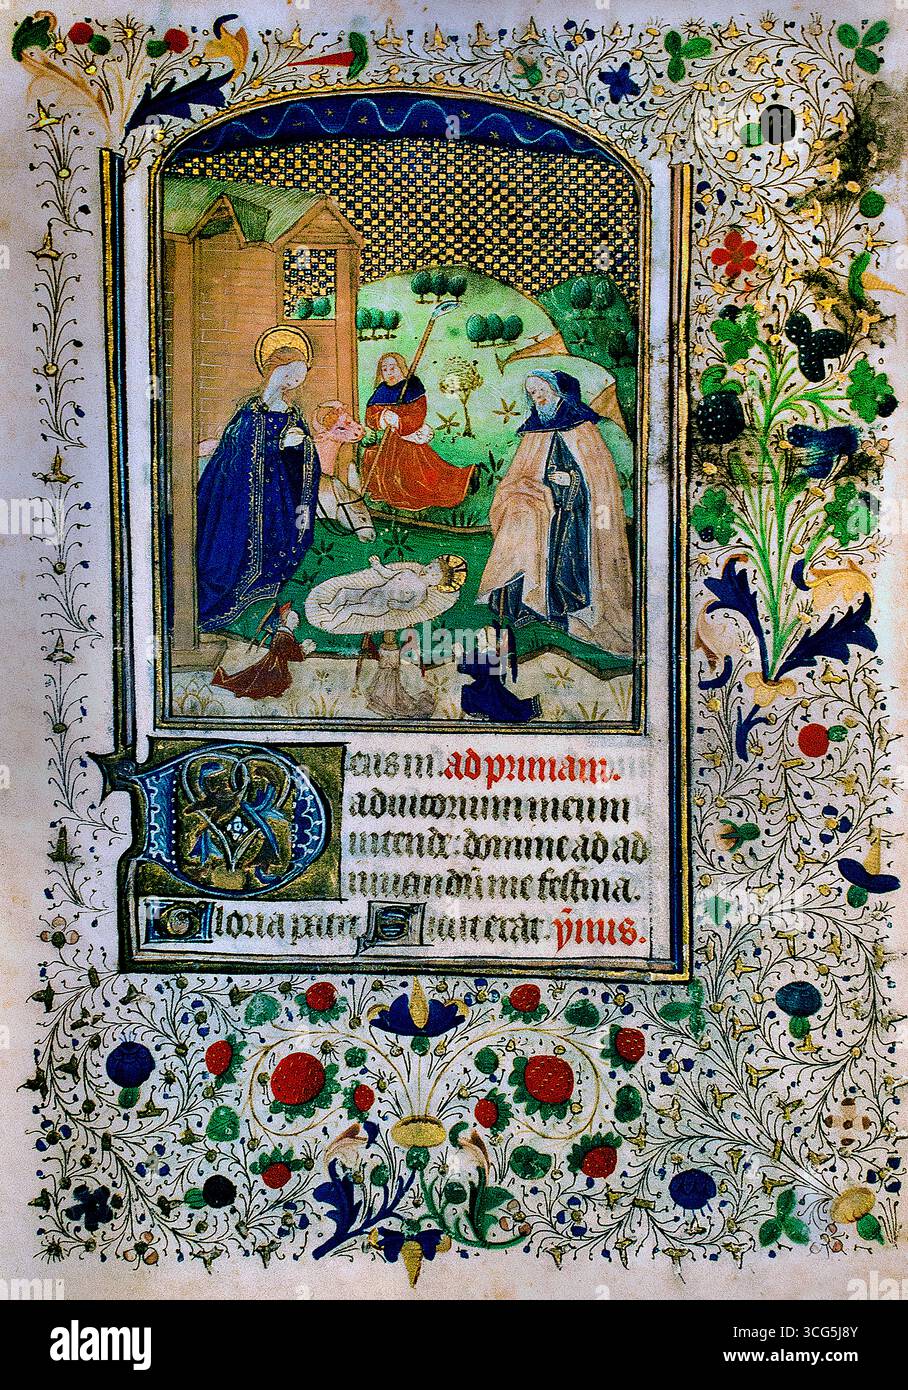 Deus in. ad primam.
adiutorium meum
intende: domine ad ad
iuuandū me festina.
Gloria patri Sicut erat. ẏmnus.
alamy
Image ID: 3CG5J8Y
www.alamy.com